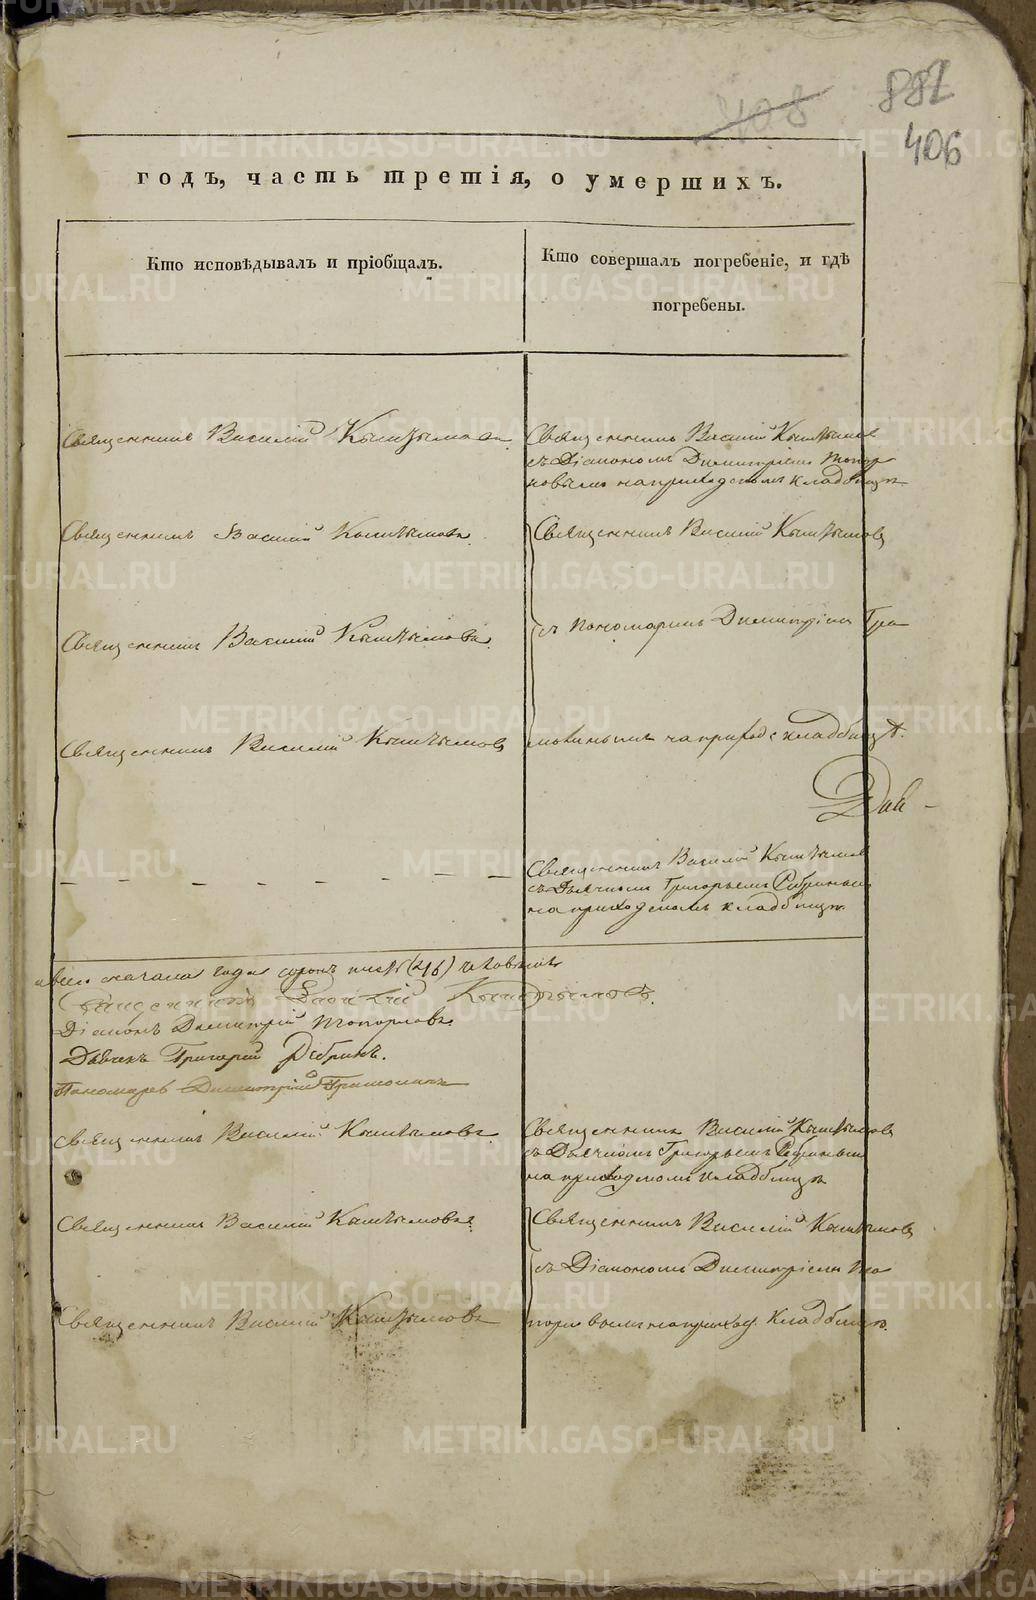 408
882
406
годъ, часть третія, о умершихъ.
Кто исповѣдывалъ и пріобщалъ.
Кто совершалъ погребеніе, и гдѣ
погребены.
Священникъ Василій Кыштымовъ.
Священникъ Василій Кыштымов
съ Діакономъ Димитріемъ Топор
новымъ на приходскомъ кладбищѣ
Священникъ Василій Кыштымовъ.
Священникъ Василій Кыштымовъ
Священникъ Василій Кыштымовъ.
съ Пономаремъ Димитріемъ
Священникъ Василій Кыштымовъ
на приход: кладбищѣ.
Священникъ Василій Кыштымов
съ Дьячкомъ Григорьемъ Рѣбринымъ
на приходскомъ кладбищѣ.
сначала года сорокъ (46) человѣкъ
Священникъ Василій Кыштымовъ.
Діаконъ Димитрій Топорковъ.
Дьячекъ Григорій Рѣбринъ.
Пономарь Димитрій
Священникъ Василій Кыштымовъ.
Священникъ Василій Кыштымовъ
съ Дьячкомъ Григорьемъ Рѣбринымъ
на приходскомъ кладбищѣ
Священникъ Василій Кыштымовъ.
Священникъ Василій Кыштымовъ
съ Діакономъ Димитріемъ То
Священникъ Василій Кыштымовъ
на приход. кладбищѣ.
METRIKI.GASO-URAL.RU